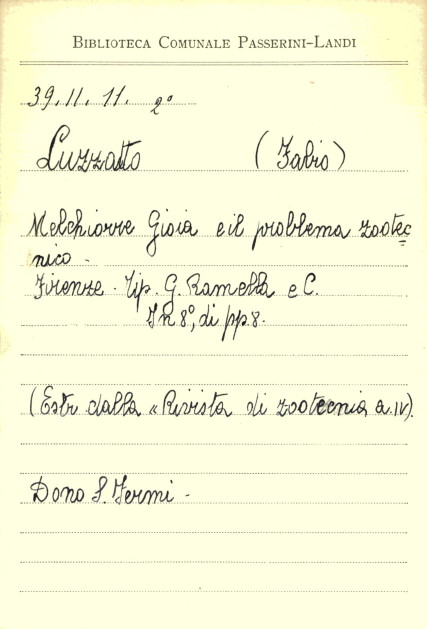 BIBLIOTECA COMUNALE PASSERINI-LANDI
39.II.11. 2°
Luzzatto (Fabio)
Melchiorre Gioia e il problema zootec
nico -
Firenze - Tip. G. Ramella e C.
In 8°, di pp. 8.
(Estr. dalla « Rivista di zootecnia a. IV).
Dono S. Fermi -